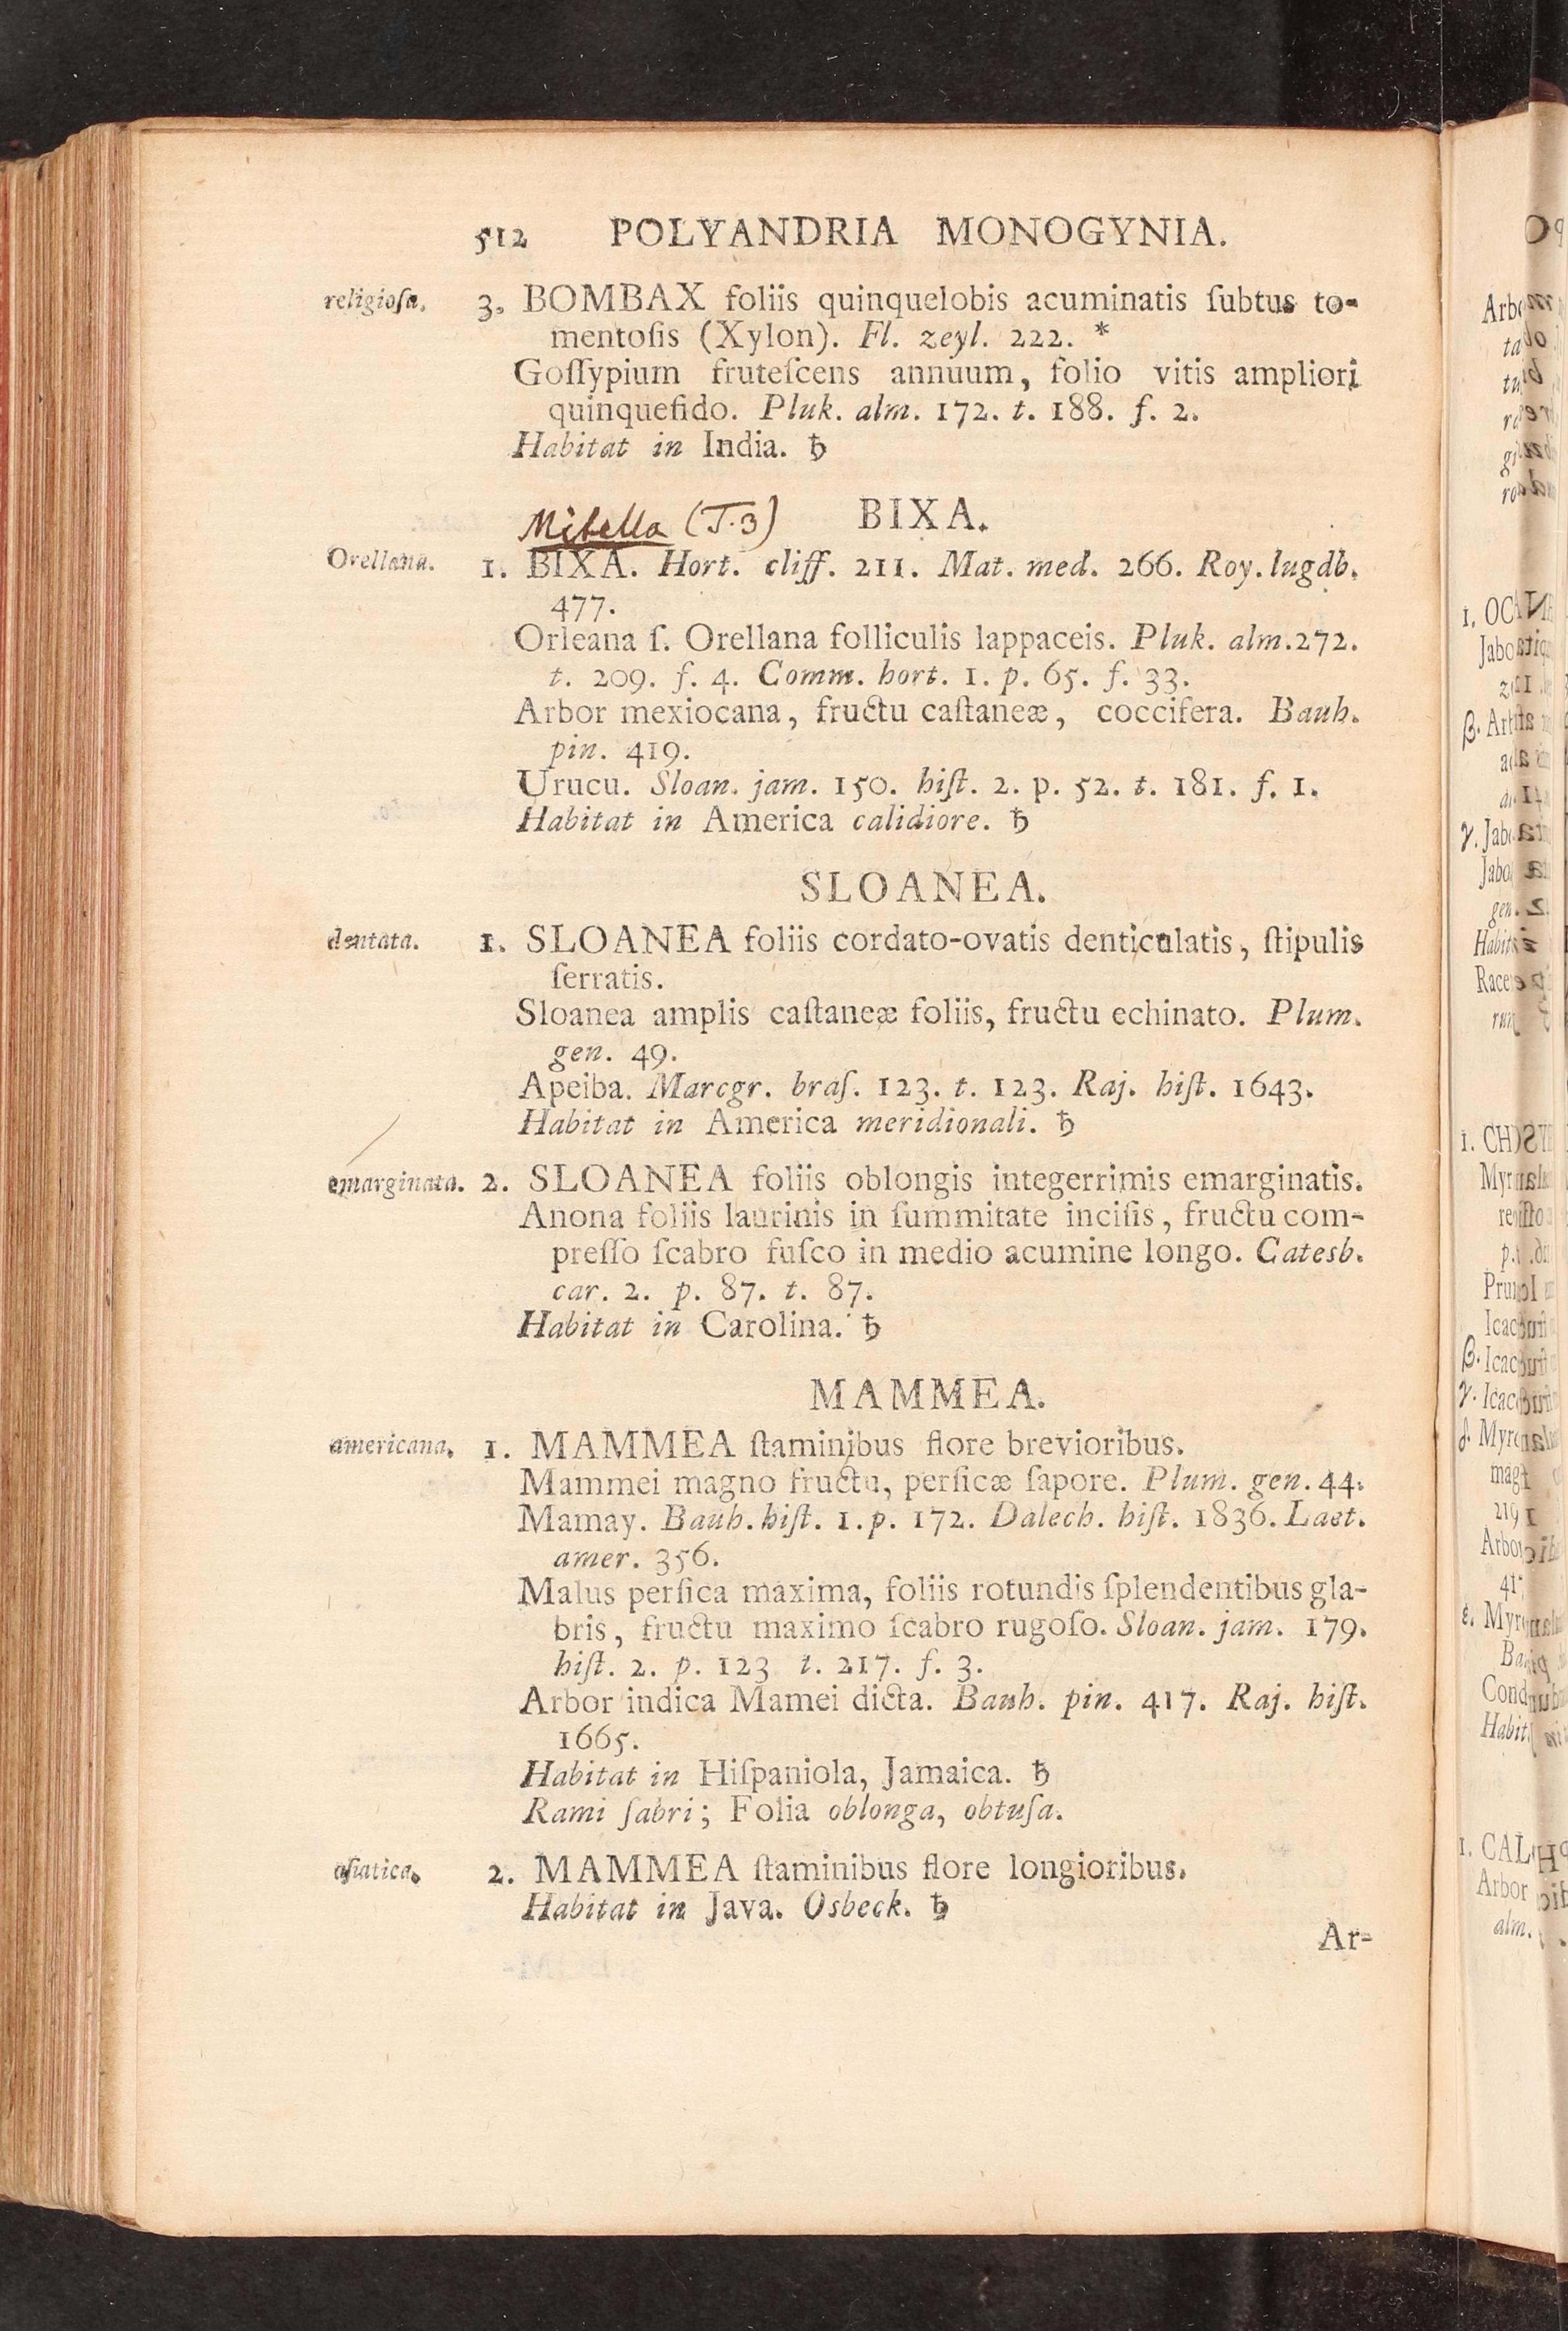 512 POLYANDRIA MONOGYNIA.
religioſa. 3. BOMBAX foliis quinquelobis acuminatis ſubtus to-
mentoſis (Xylon). Fl. zeyl. 222. *
Goſſypium fruteſcens annuum, folio vitis ampliori
quinquefido. Pluk. alm. 172. t. 188. f. 2.
Habitat in India. ♄
Mitella (T.3) BIXA.
Orellana. 1. BIXA. Hort. cliff. 211. Mat. med. 266. Roy. lugdb.
477.
Orleana ſ. Orellana folliculis lappaceis. Pluk. alm. 272.
t. 209. f. 4. Comm. hort. 1. p. 65. f. 33.
Arbor mexiocana, fructu caſtaneæ, coccifera. Bauh.
pin. 419.
Urucu. Sloan. jam. 150. hiſt. 2. p. 52. t. 181. f. 1.
Habitat in America calidiore. ♄
SLOANEA.
dentata. 1. SLOANEA foliis cordato-ovatis denticulatis, ſtipulis
ſerratis.
Sloanea amplis caſtaneæ foliis, fructu echinato. Plum.
gen. 49.
Apeiba. Marcgr. braſ. 123. t. 123. Raj. hiſt. 1643.
Habitat in America meridionali. ♄
emarginata. 2. SLOANEA foliis oblongis integerrimis emarginatis.
Anona foliis laurinis in ſummitate inciſis, fructu com-
preſſo ſcabro fuſco in medio acumine longo. Catesb.
car. 2. p. 87. t. 87.
Habitat in Carolina. ♄
MAMMEA.
americana. 1. MAMMEA ſtaminibus flore brevioribus.
Mammei magno fructu, perſicæ ſapore. Plum. gen. 44.
Mamay. Bauh. hiſt. 1. p. 172. Dalech. hiſt. 1836. Laet.
amer. 356.
Malus perſica maxima, foliis rotundis ſplendentibus gla-
bris, fructu maximo ſcabro rugoſo. Sloan. jam. 179.
hiſt. 2. p. 123 t. 217. f. 3.
Arbor indica Mamei dicta. Bauh. pin. 417. Raj. hiſt.
1665.
Habitat in Hiſpaniola, Jamaica. ♄
Rami ſabri; Folia oblonga, obtuſa.
aſiatica. 2. MAMMEA ſtaminibus flore longioribus.
Habitat in Java. Osbeck. ♄
Ar-